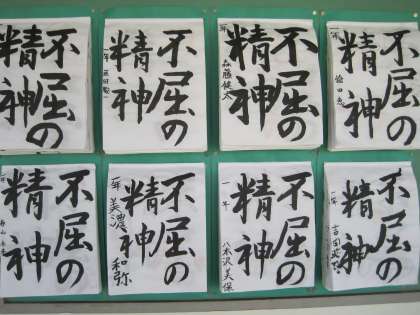 不屈の
精神
不屈の
精神
一年
不屈の
精神
森藤健太
不屈の
精神
一年
不屈の
精神
不屈の
精神
一年 美濃和弥
不屈の
精神
一年 八木沢美保
不屈の
精神
一年